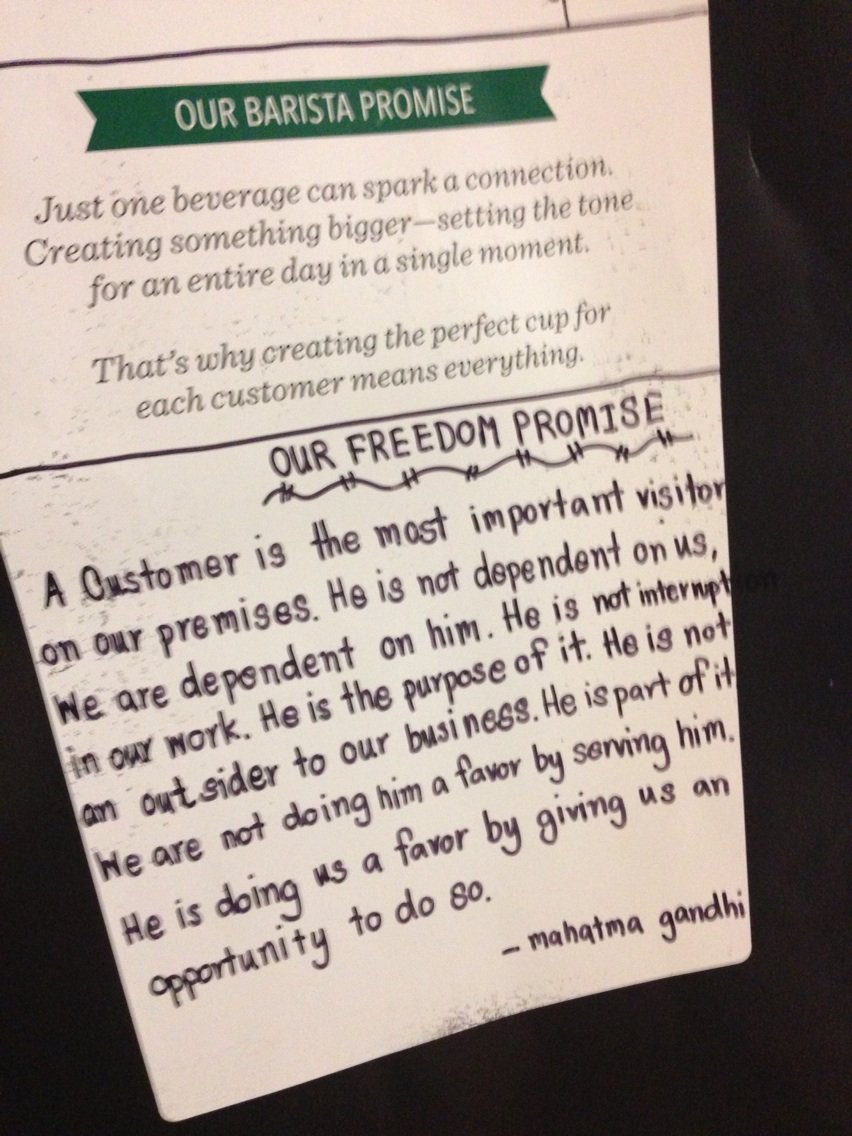 OUR BARISTA PROMISE
Just one beverage can spark a connection.
Creating something bigger—setting the tone
for an entire day in a single moment.
That's why creating the perfect cup for
each customer means everything.
OUR FREEDOM PROMISE
A Customer is the most important visitor
on our premises. He is not dependent on us,
We are dependent on him. He is not interruption
in our work. He is the purpose of it. He is not
an outsider to our business. He is part of it
We are not doing him a favor by serving him.
He is doing us a favor by giving us an
opportunity to do so.
- mahatma gandhi